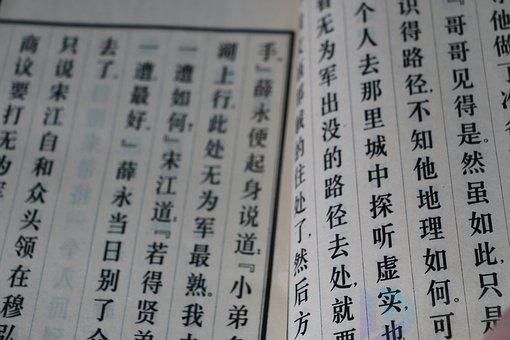 他做了
『哥哥见得是。然虽如此,只是
识得路径,不知他地理如何。可
个人去那里城中探听虚实,也
看无为军出没的路径去处,就要
那贼的住处了,然后方
手。』薛永便起身说道:『小弟
湖上行,此处无为军最熟。我
一遭如何?』宋江道:『若得贤弟
一遭最好。』薛永当日别了
去了。
只说宋江自和众头领在穆弘
商议要打无为军